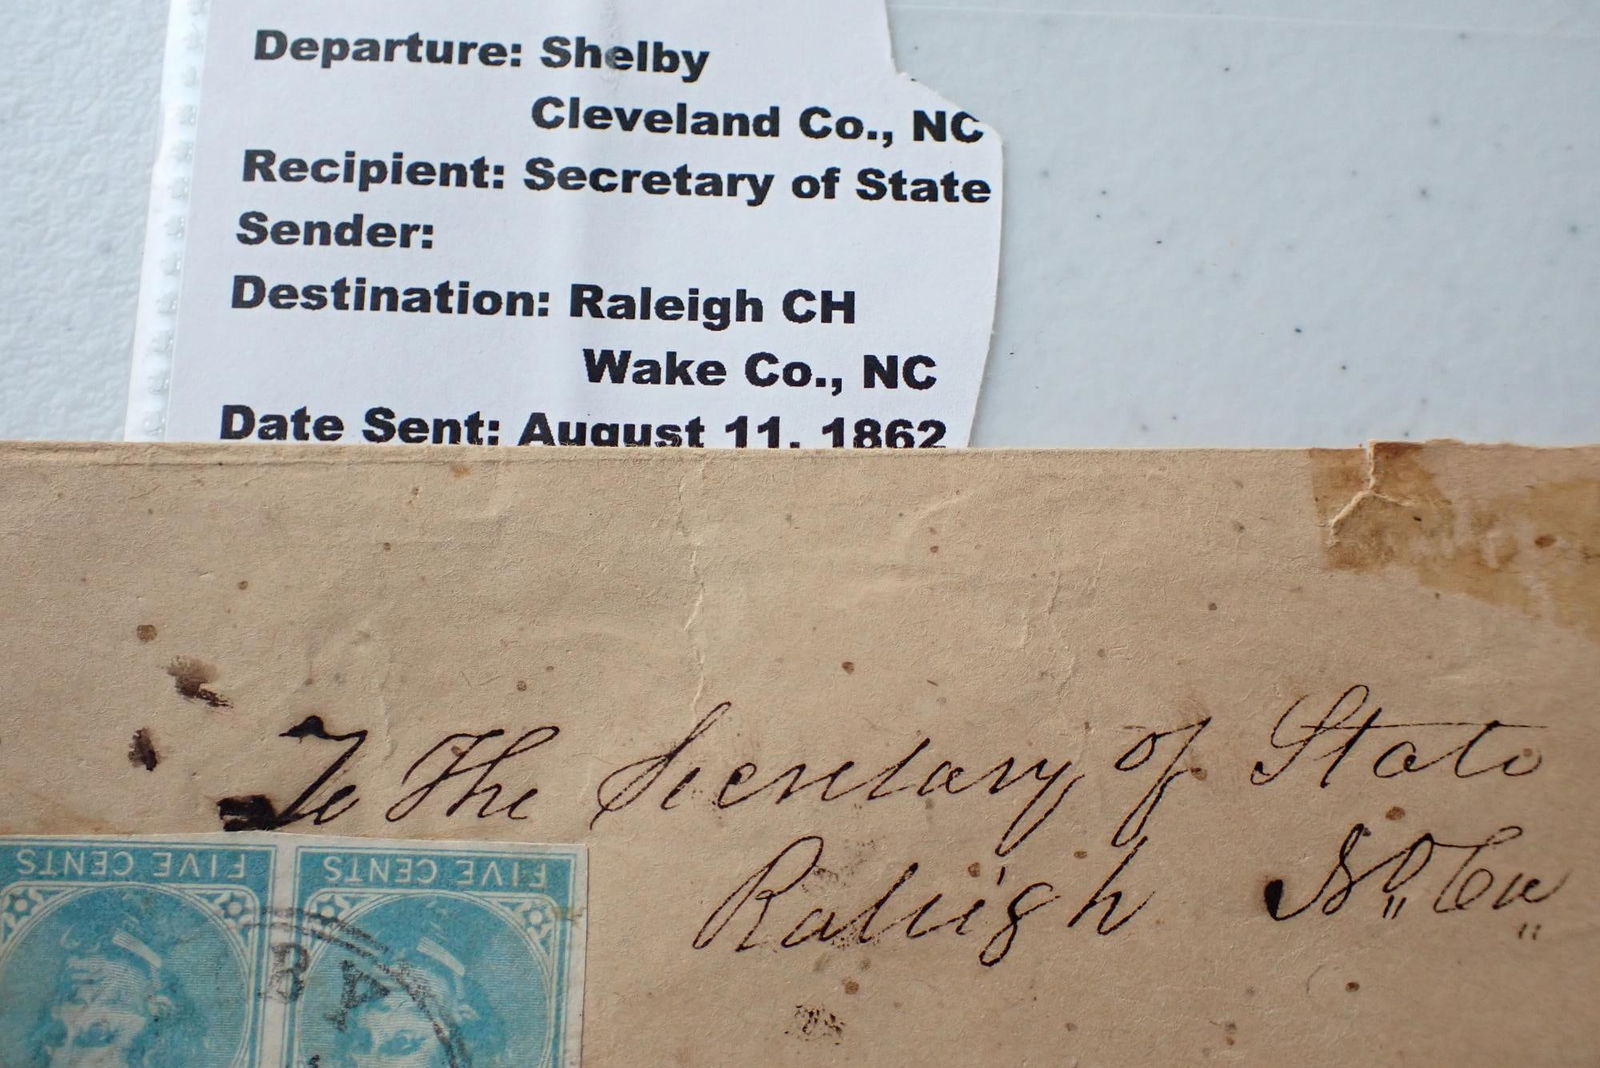 Departure: Shelby
Cleveland Co., NC
Recipient: Secretary of State
Sender:
Destination: Raleigh CH
Wake Co., NC
Date Sent: August 11, 1862
To The Secretary of State
Raleigh No. Ca
FIVE CENTS FIVE CENTS